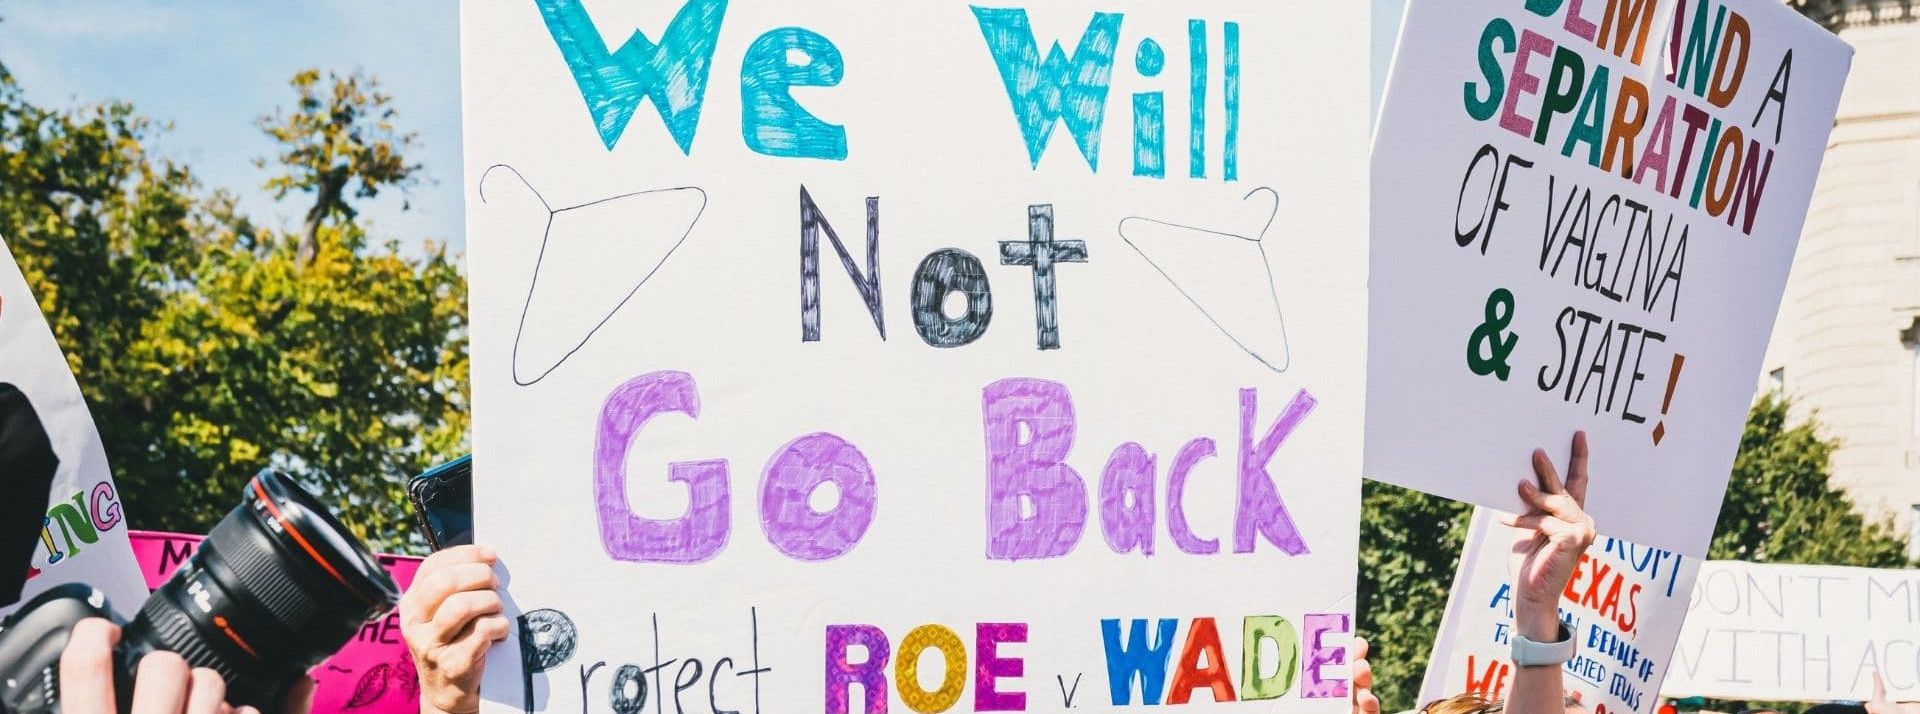 We Will
Not
Go Back
Protect ROE v. WADE
DEMAND A
SEPARATION
OF VAGINA
& STATE!
FROM
TEXAS,
ON BEHALF OF
DON'T
WITH